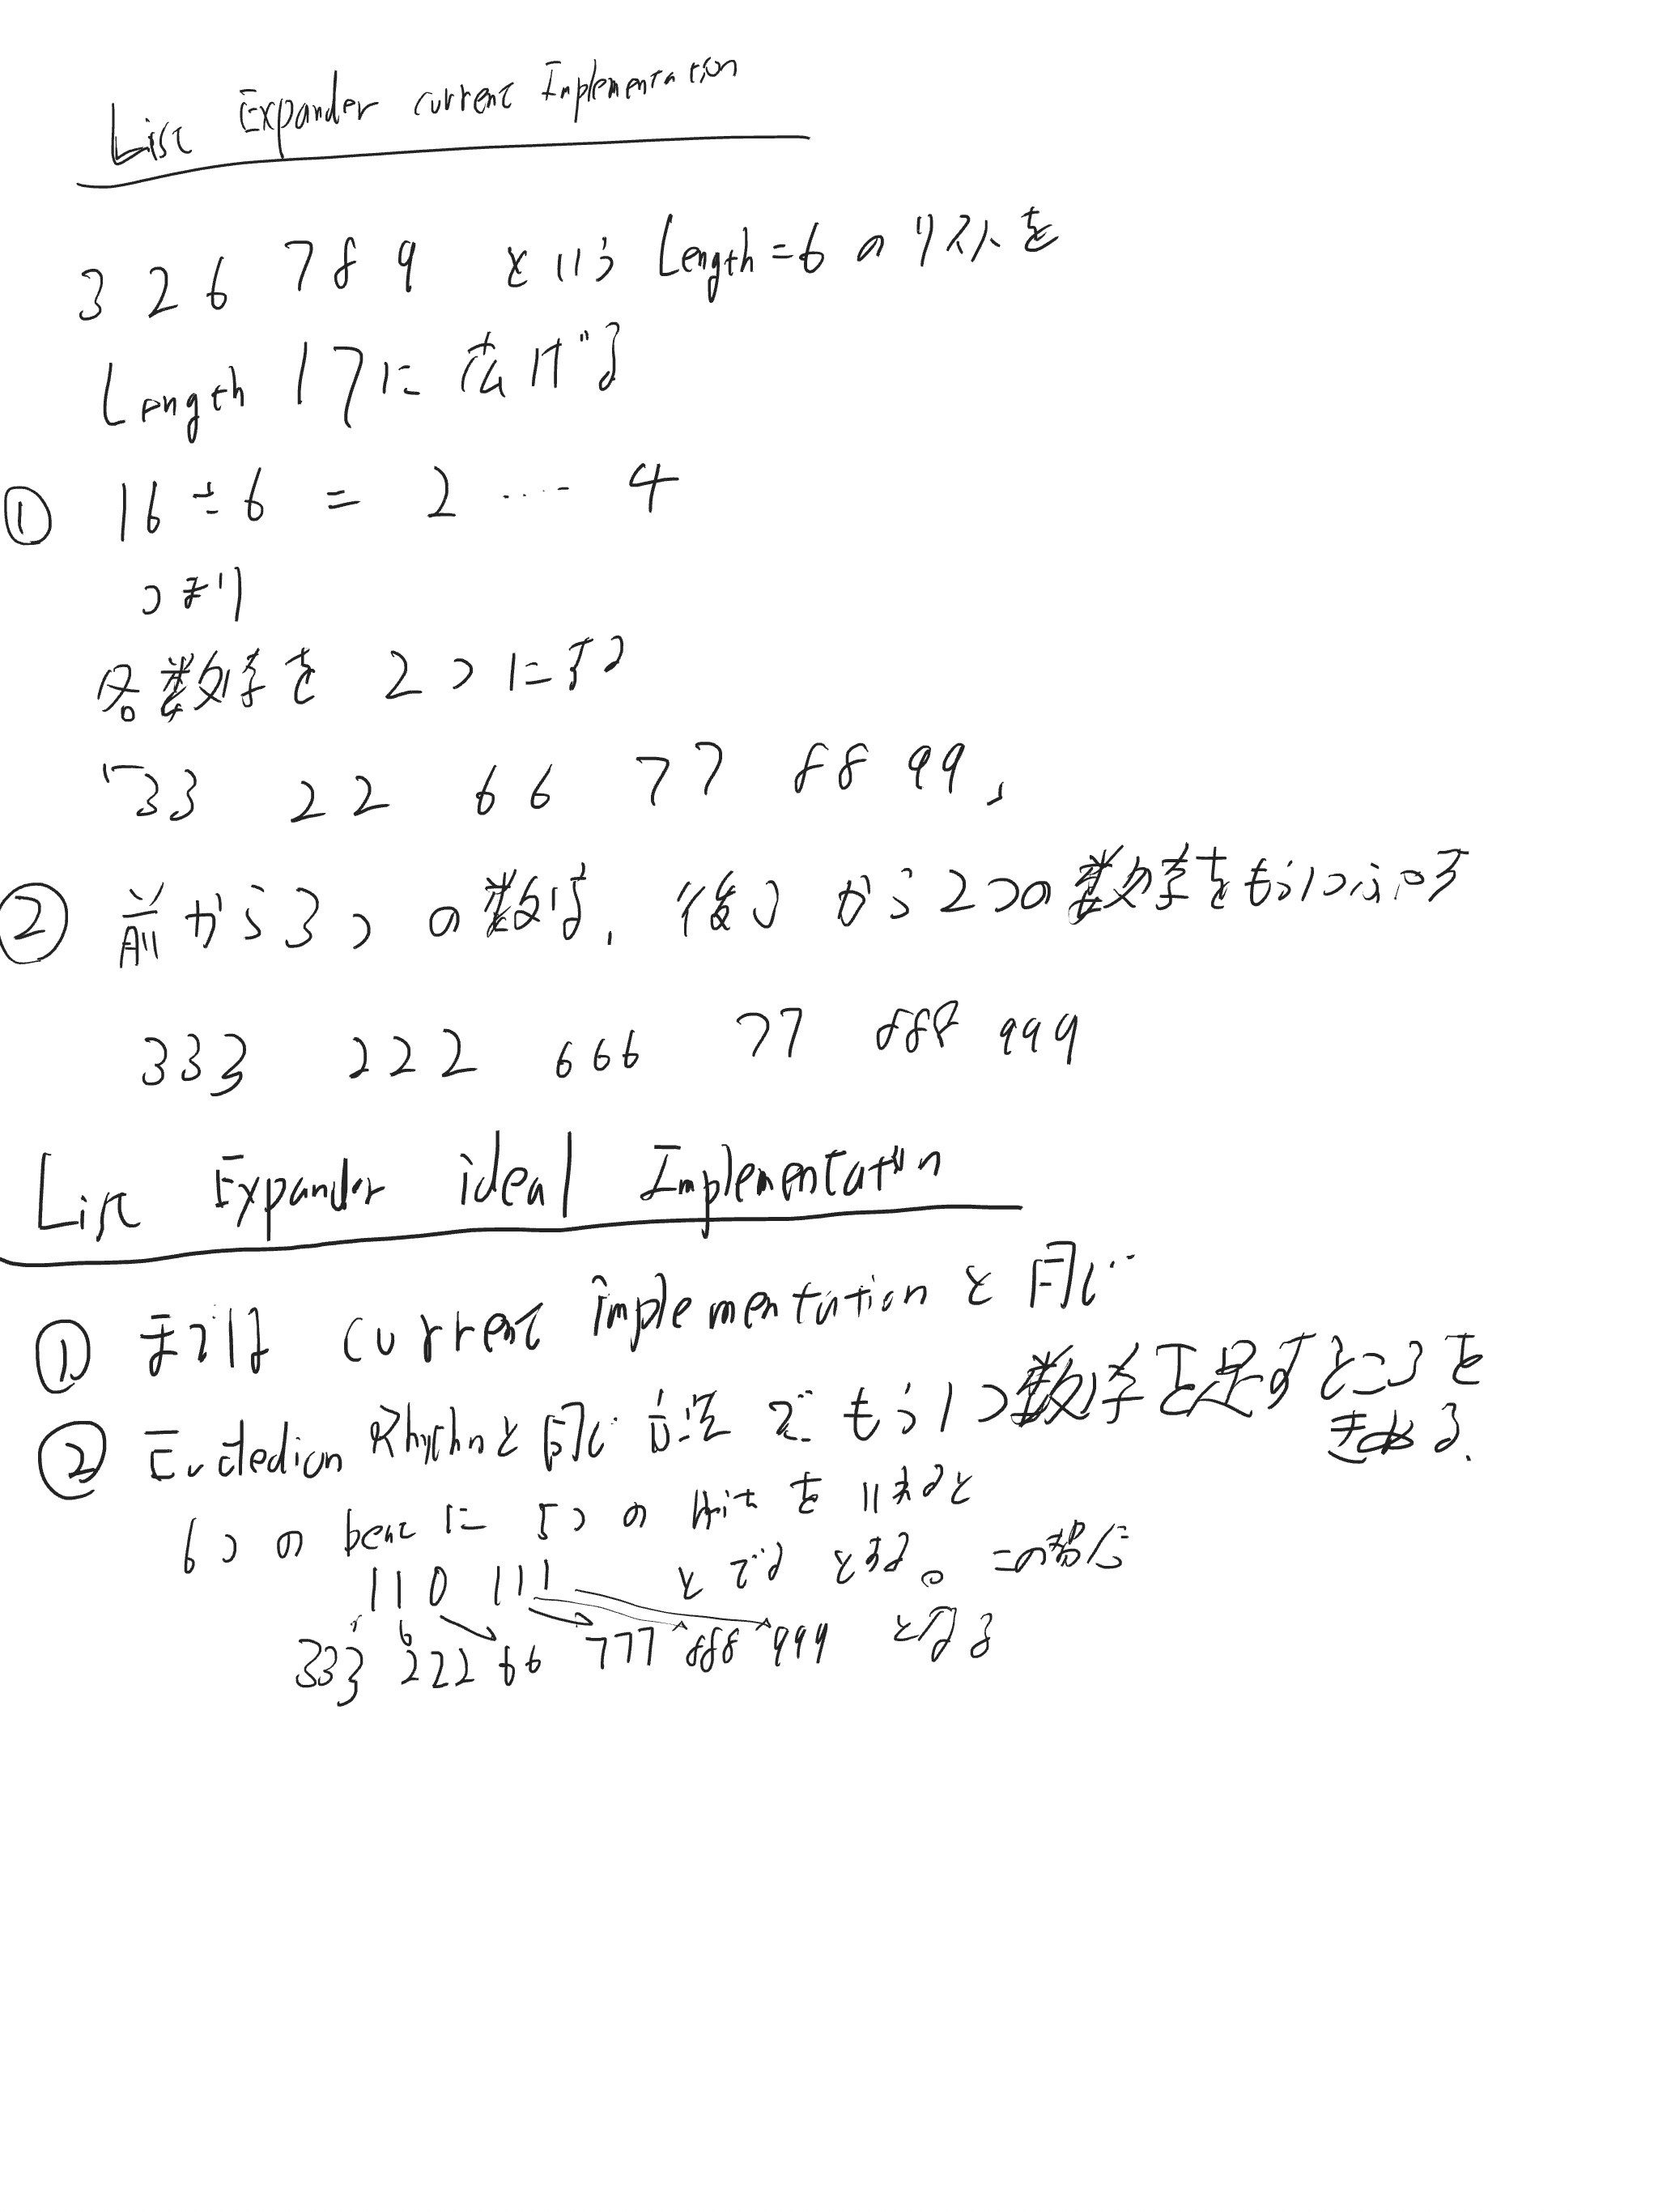 List Expander current Implementation
3 2 6 7 8 9 という Length=6 のリストを
Length 17に広げる
① 16÷6 = 2 ‥‥ 4
つまり
各数字を 2つにする
33 22 66 77 88 99、
② 前から3つの数字、後ろから2つの数字をもう1つふやす
333 222 666 77 888 999
List Expander ideal Implementation
① までは current implementation と同じ
② Eucledian Rhythmと同じ方法でもう1つ数字を足すところを
きめる.
6つの beatに 5つの hitを いれると
110 111 とでるとする。この場合
333 222 66 777 888 999 となる